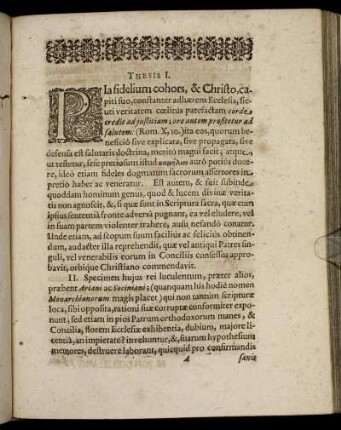 THESIS I.
PIa fidelium cohors, & Christo, ca-
piti suo, constanter adhærens Ecclesia, sic-
uti veritatem cœlitùs patefactam corde
credit ad justitiam; ore autem profitetur ad
salutem: (Rom. X, 10.) ita eos, quorum be-
neficiô sive explicata, sive propagata, sive
defensa est salutaris doctrina, meritò magni facit; atque,
ut testetur, se se pretiosum istud auro potiùs duce-
re, ideò etiam fideles dogmatum sacrorum assertores in
pretio habet ac veneratur. Est autem, & fuit subinde
quoddam hominum genus, quod & lucem divinæ verita-
tis non agnoscit, & si quæ sunt in Scriptura sacra, quæ eum
ipsius sententiâ fronte adversâ pugnant, ea vel eludere, vel
in suam partem violenter trahere, ausu nefando conatur.
Unde etiam, ad scopum suum faciliùs ac feliciùs obtinen-
dum, audacter illa reprehendit, quæ vel antiqui Patres sin-
guli, vel venerabilis eorum in Conciliis consessus appro-
bavit, orbique Christiano commendavit.
II. Specimen hujus rei luculentum, præter alios,
præbent Ariani ac Sociniani; (quanquam his hodiè nomen
Monarchianorum magis placet) qui non tantùm scripturæ
loca, sibi opposita, rationi suæ corruptæ conformiter expo-
nunt; sed etiam in pios Patrum orthodoxorum manes, &
Concilia, florem Ecclesiæ exhibentia, dubium, majore li-
centiâ, an impietate? involuntur, &, suarum hypothesium
memores, destruere laborant, quicquid pro confirmandis
A sanio